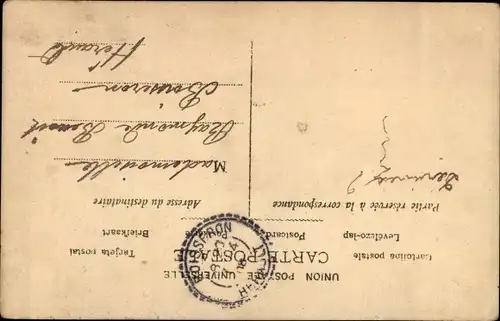 UNION POSTALE UNIVERSELLE
CARTE POSTALE
Cartolina postale
Levelezo-lap
Postcard
Briefkaart
Tarjeta postal
BOISSERON
HERAULT
Partie réservée à la correspondance
Adresse du destinataire
Mademoiselle
Raymonde Benoit
Boisseron
Hérault